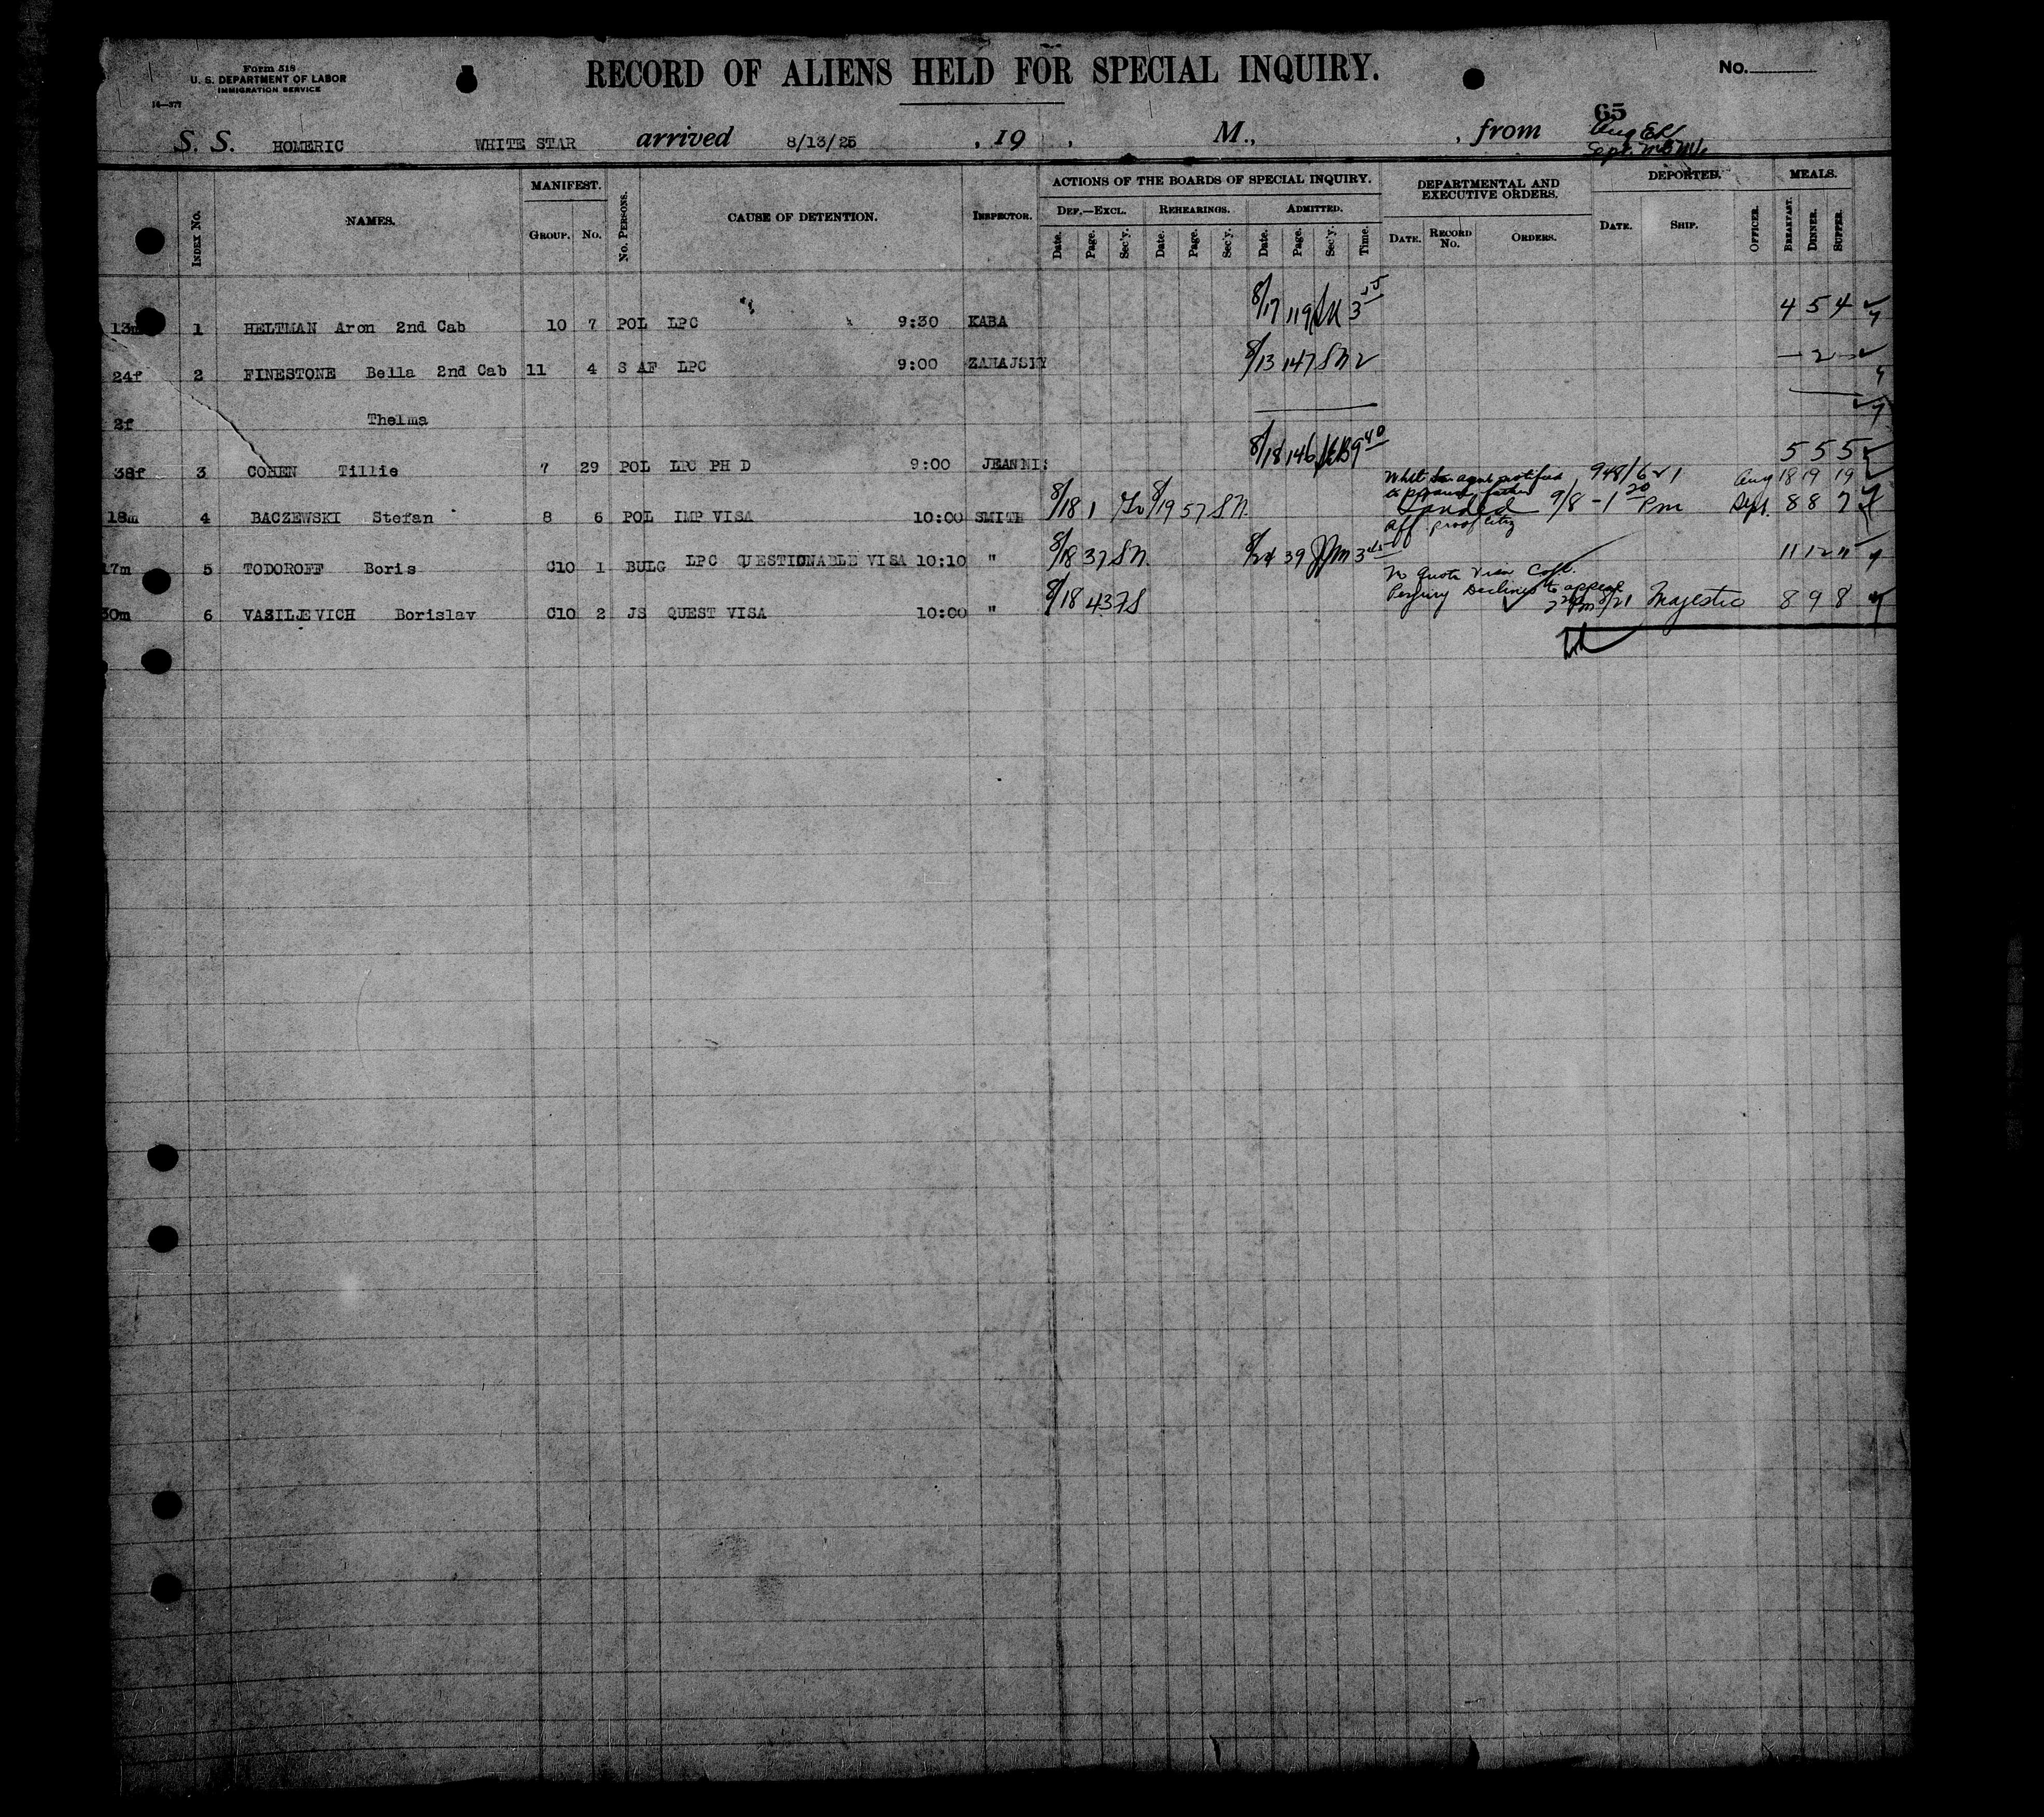 Form 518
U. S. DEPARTMENT OF LABOR
IMMIGRATION SERVICE
14—377
RECORD OF ALIENS HELD FOR SPECIAL INQUIRY.
No.
65
S. S. HOMERIC WHITE STAR arrived 8/13/25 , 19 , M., , from
Aug EK
Sept.
INDEX NO. NAMES. MANIFEST. GROUP. NO. NO. PERSONS. CAUSE OF DETENTION. INSPECTOR. ACTIONS OF THE BOARDS OF SPECIAL INQUIRY. DEPARTMENTAL AND EXECUTIVE ORDERS. DEPORTED. MEALS.
DEF.—EXCL. REHEARINGS. ADMITTED.
Date. Page. Sec'y. Date. Page. Sec'y. Date. Page. Sec'y. Time. DATE. RECORD NO. ORDERS. DATE. SHIP. OFFICER. BREAKFAST. DINNER. SUPPER.
13m 1 HELTMAN Aron 2nd Cab 10 7 POL LPC 9:30 KABA 8/17 119 3 4 5 4
24f 2 FINESTONE Bella 2nd Cab 11 4 S AF LPC 9:00 8/13 147 SN 2 — 2 —
2f Thelma
38f 3 COHEN Tillie 7 29 POL LPC PH D 9:00 JEANNIS 8/18 146 9 40 5 5 5
Aug 18 19 19
18m 4 BACZEWSKI Stefan 8 6 POL IMP VISA 10:00 SMITH 8/18 1 8/19 57 SN Landed 9/8 - 1 20 Pm Sept. 8 8 7
Aff proof
17m 5 TODOROFF Boris C10 1 BULG LPC QUESTIONABLE VISA 10:10 " 8/18 37 SN 8/24 39 3 45 11 12 11
No quota visa
Perjury Declines to appeal
30m 6 VASILJEVICH Borislav C10 2 JS QUEST VISA 10:00 " 8/18 43 Pm 8/21 Majestic 8 9 8